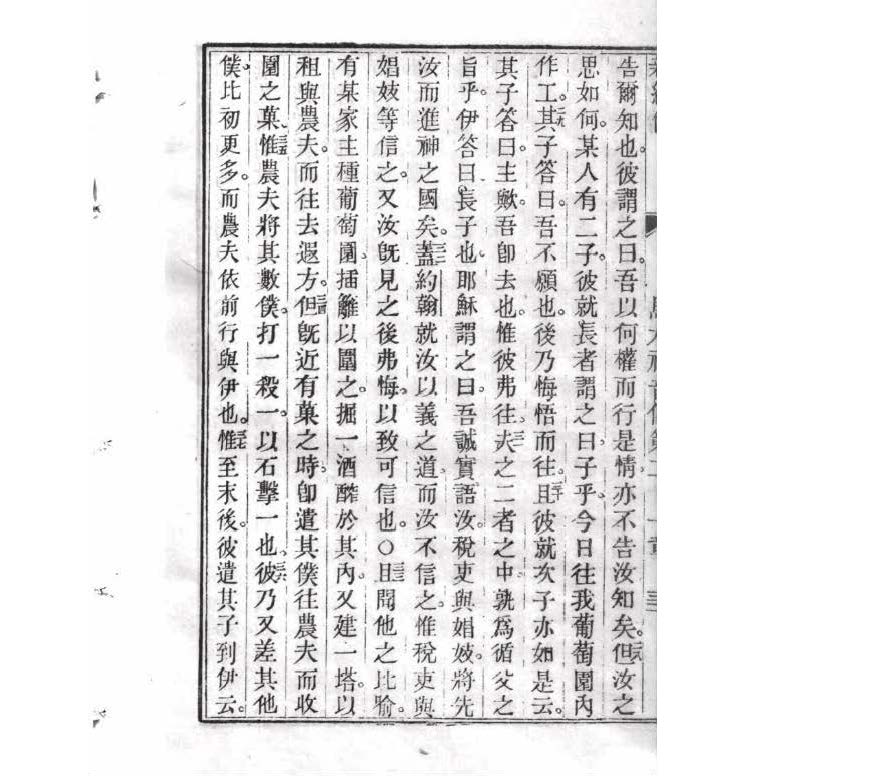 告爾知也彼謂之曰。吾以何權而行是情亦不告汝知矣。但汝之
思如何。某人有二子。彼就長者謂之曰子乎。今日往我葡萄園內
作工。其子答曰。吾不願也。後乃悔悟而往。且彼就次子亦如是云。
其子答曰。主歟。吾卽去也。惟彼弗往。夫之二者之中孰爲循父之
旨乎。伊答曰。長子也。耶穌謂之曰。吾誠實語汝。稅吏與娼妓。將先
汝而進神之國矣。蓋約翰就汝以義之道。而汝不信之。惟稅吏與
娼妓等信之。又汝旣見之後弗悔。以致可信也。○且聞他之比喻。
有某家主種葡萄園。插籬以圍之。掘一酒醡於其內。又建一塔。以
租與農夫。而往去遐方。但旣近有菓之時。卽遣其僕往農夫而收
園之菓。惟農夫將其數僕。打一殺一。以石擊一也。彼乃又差其他
僕。比初更多。而農夫依前行與伊也。惟至末後。彼遣其子到伊云。